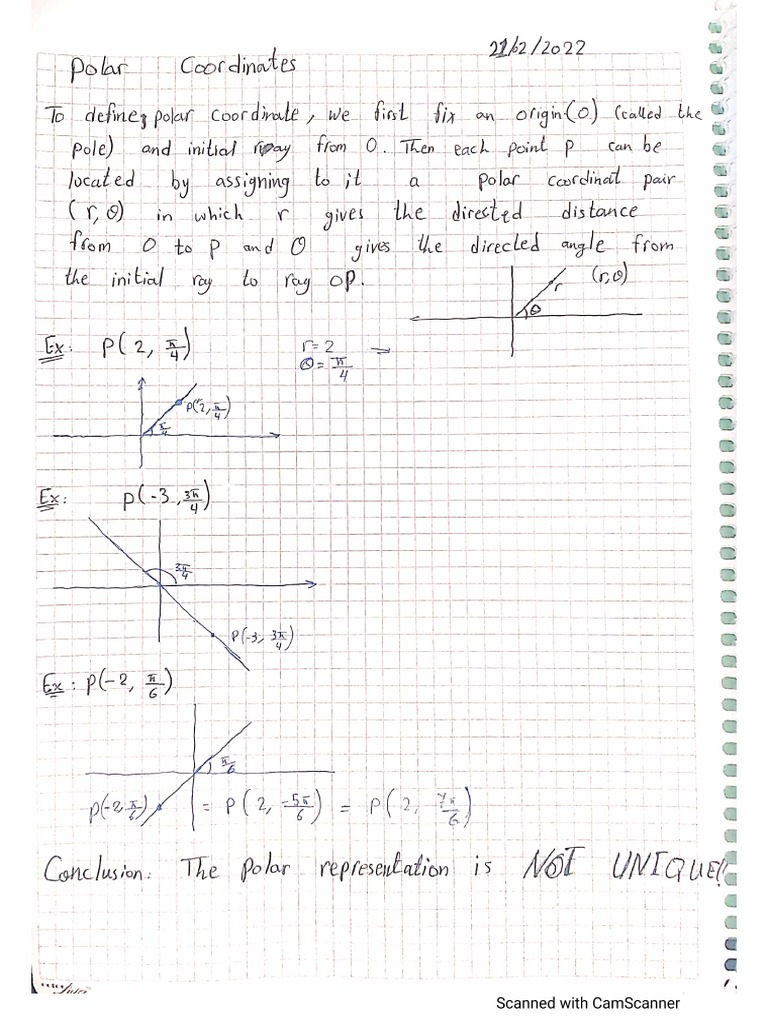 21/02/2022
Polar Coordinates
To define polar coordinate, we first fix an origin (O) (called the
pole) and initial ray from O. Then each point P can be
located by assigning to it a polar coordinat pair
(r, θ) in which r gives the dirested distance
from O to P and θ gives the directed angle from
the initial ray to ray OP.
r (r,θ)
θ
Ex: P(2, π/4) r=2 →
θ=π/4
P(2, π/4)
π/4
Ex: P(-3, 3π/4)
3π/4
P(-3, 3π/4)
Ex: P(-2, π/6)
π/6
P(-2, π/6) = P(2, -5π/6) = P(2, 7π/6)
Conclusion: The polar representation is NOT UNIQUE!!
Scanned with CamScanner